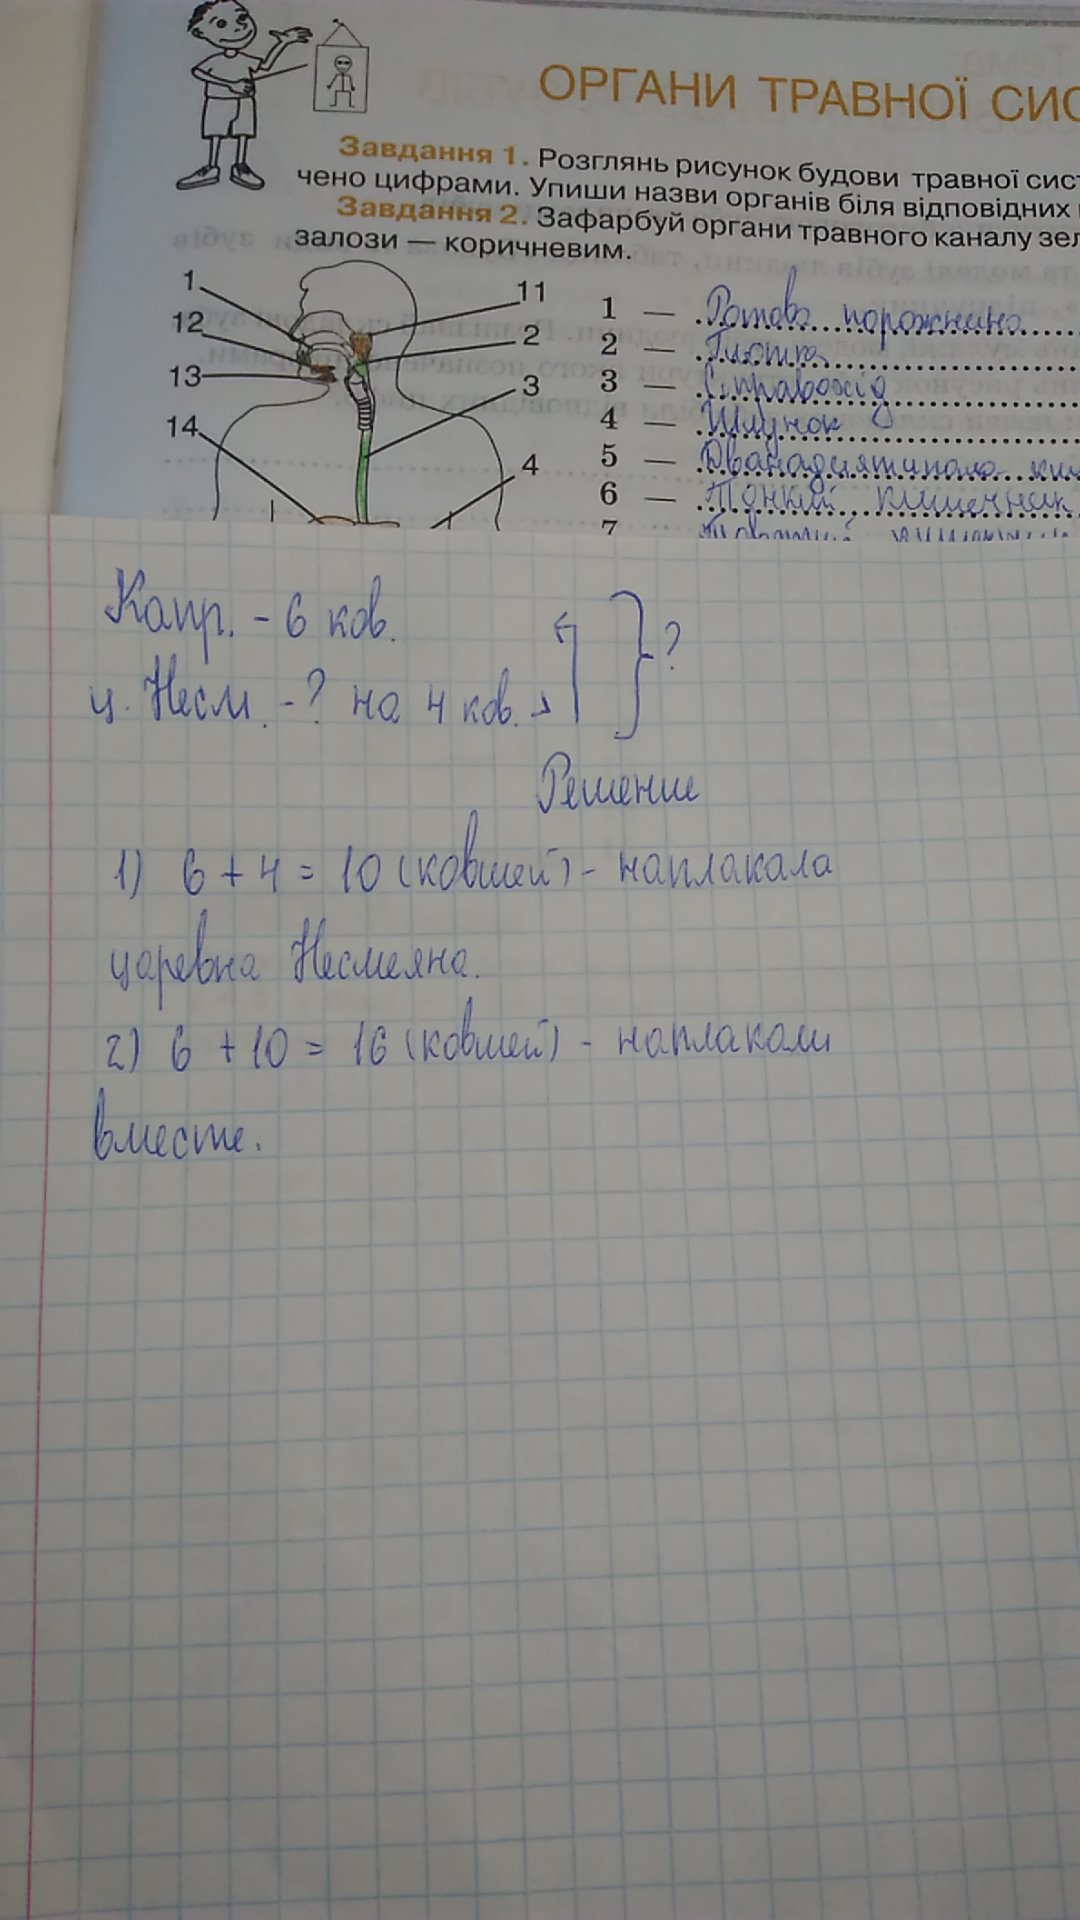 ОРГАНИ ТРАВНОЇ СИС
Завдання 1. Розглянь рисунок будови травної сист
чено цифрами. Упиши назви органів біля відповідних
Завдання 2. Зафарбуй органи травного каналу зел
залози — коричневим.
1
12
13
14
11
2
3
4
1 — Ротова порожнина
2 — Глотка
3 — Стравохід
4 — Шлунок
5 — Дванадцятипала
6 — Тонкий кишечник
7
Капр. - 6 ков.
ц. Несм. - ? на 4 ков. > } ?
Решение
1) 6 + 4 = 10 (ковшей) - наплакала
царевна Несмеяна.
2) 6 + 10 = 16 (ковшей) - наплакали
вместе.